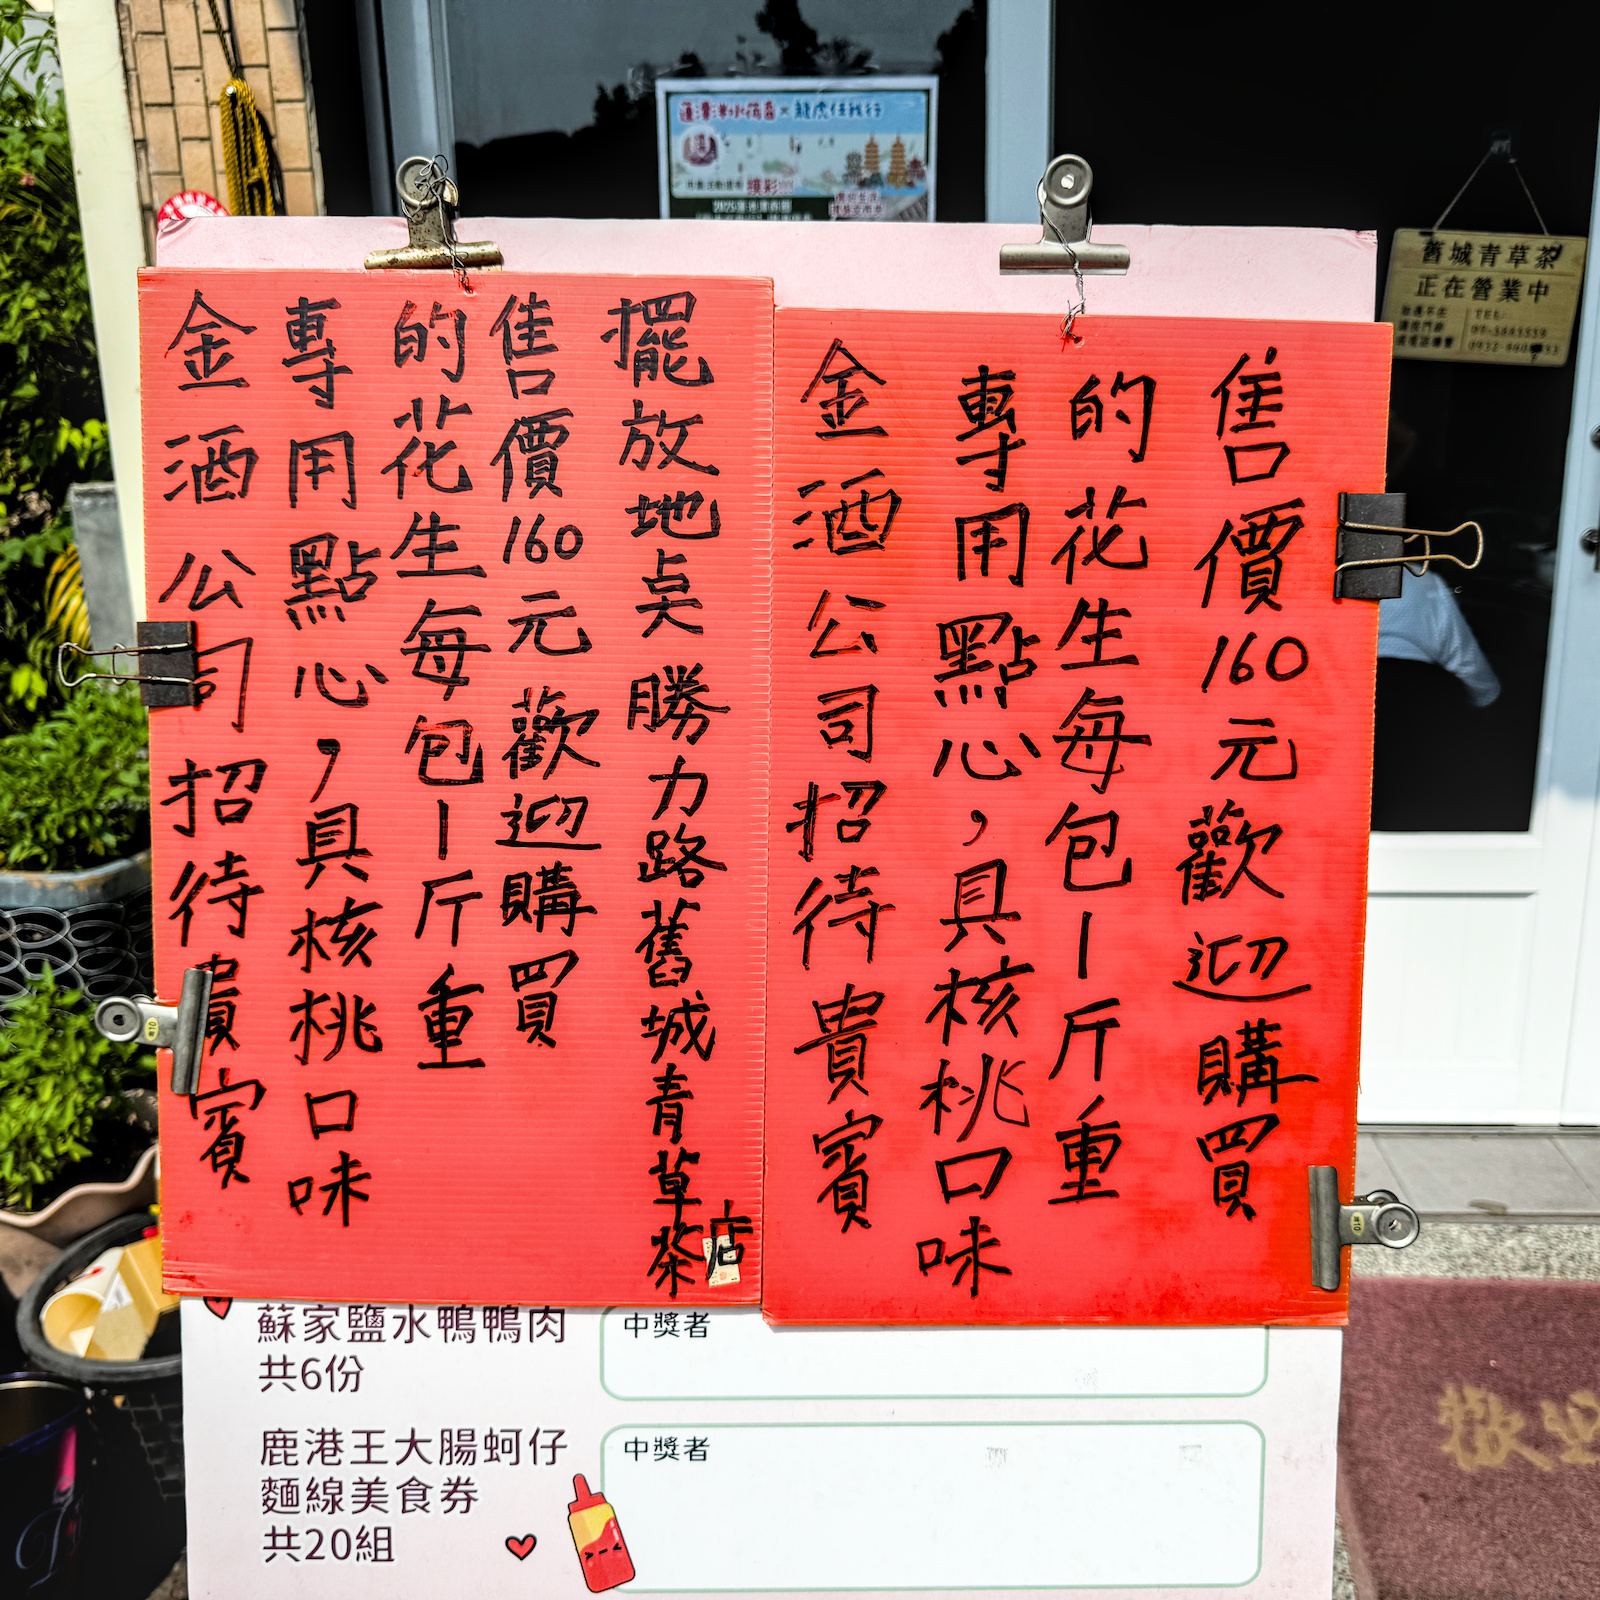 龍虎任我行
舊城青草茶
正在營業中
TEL:
金酒公司招待貴賓
專用點心，具核桃口味
的花生每包1斤重
售價160元歡迎購買
擺放地点勝力路舊城青草茶店
金酒公司招待貴賓
專用點心，具核桃口味
的花生每包1斤重
售價160元歡迎購買
蘇家鹽水鴨鴨肉
共6份
中獎者
鹿港王大腸蚵仔
麵線美食券
共20組
中獎者
歡迎